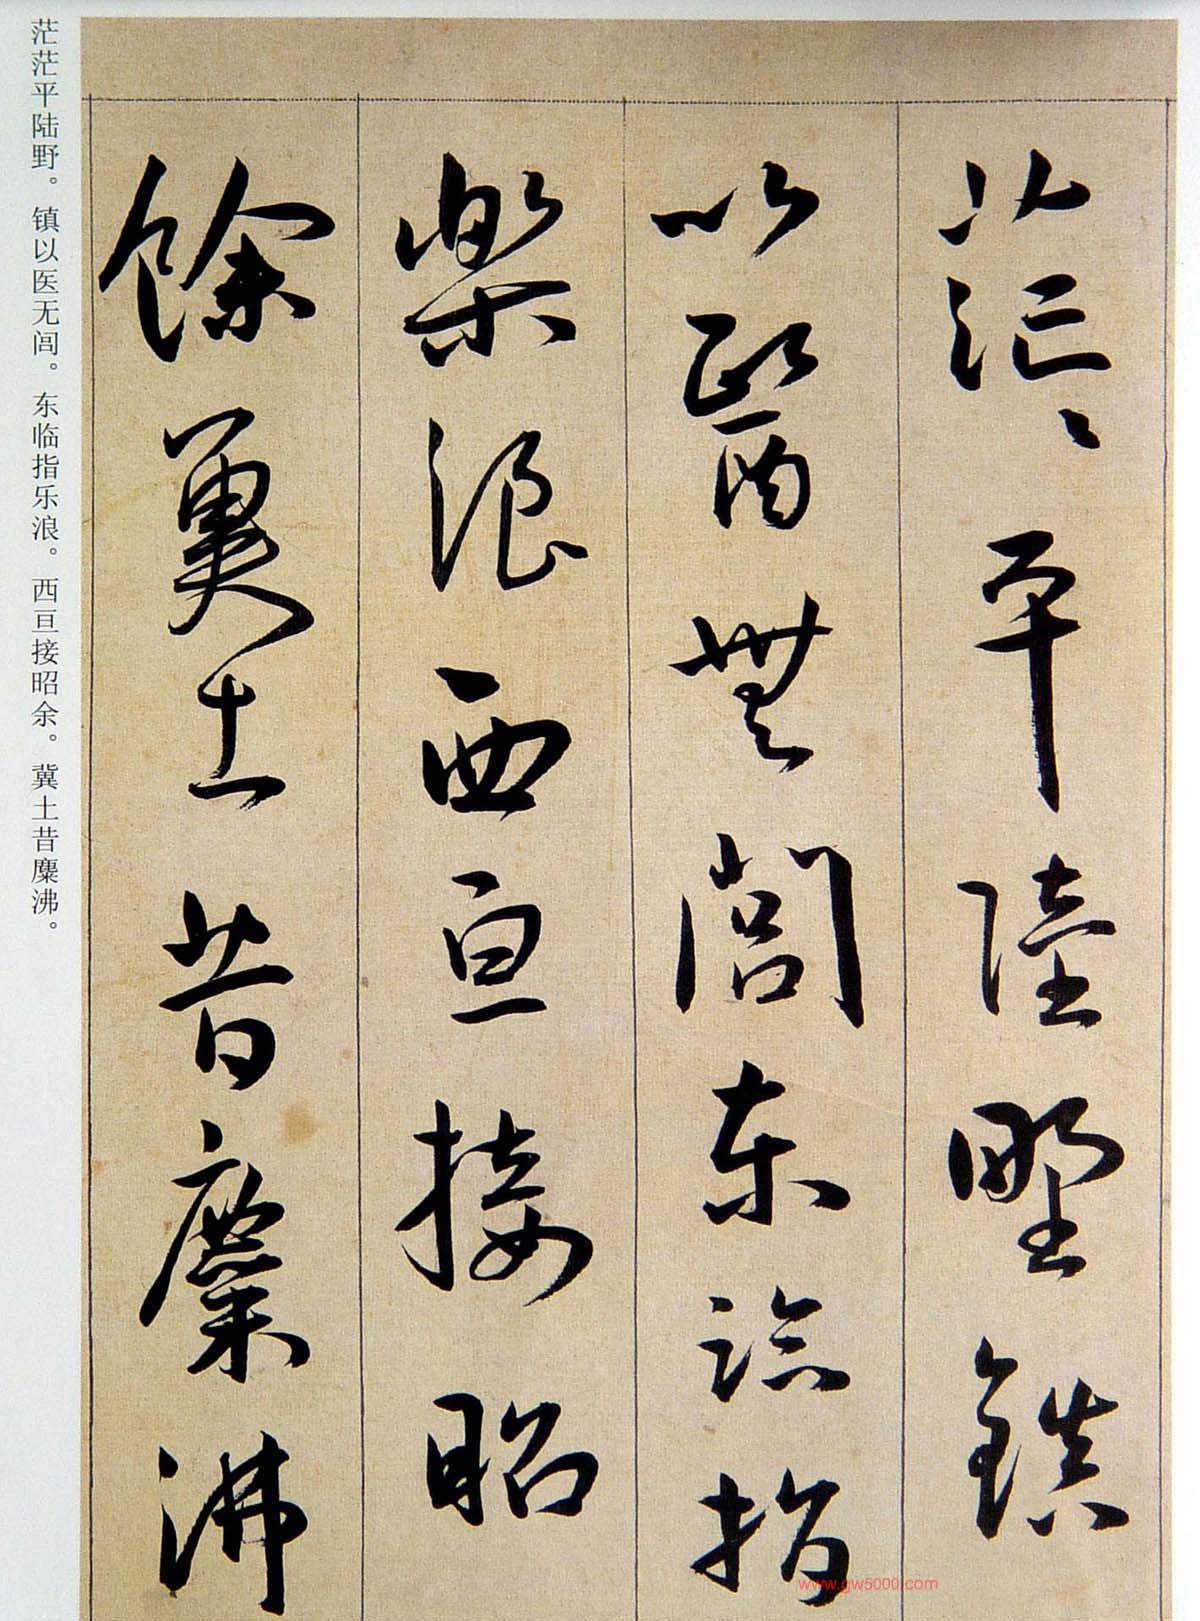 茫〻平陸野鎮
以醫無閭東臨指
樂浪西亘接昭
餘冀土昔麋沸
茫茫平陆野。镇以医无闾。东临指乐浪。西亘接昭余。冀土昔麋沸。
www.gw5000.com